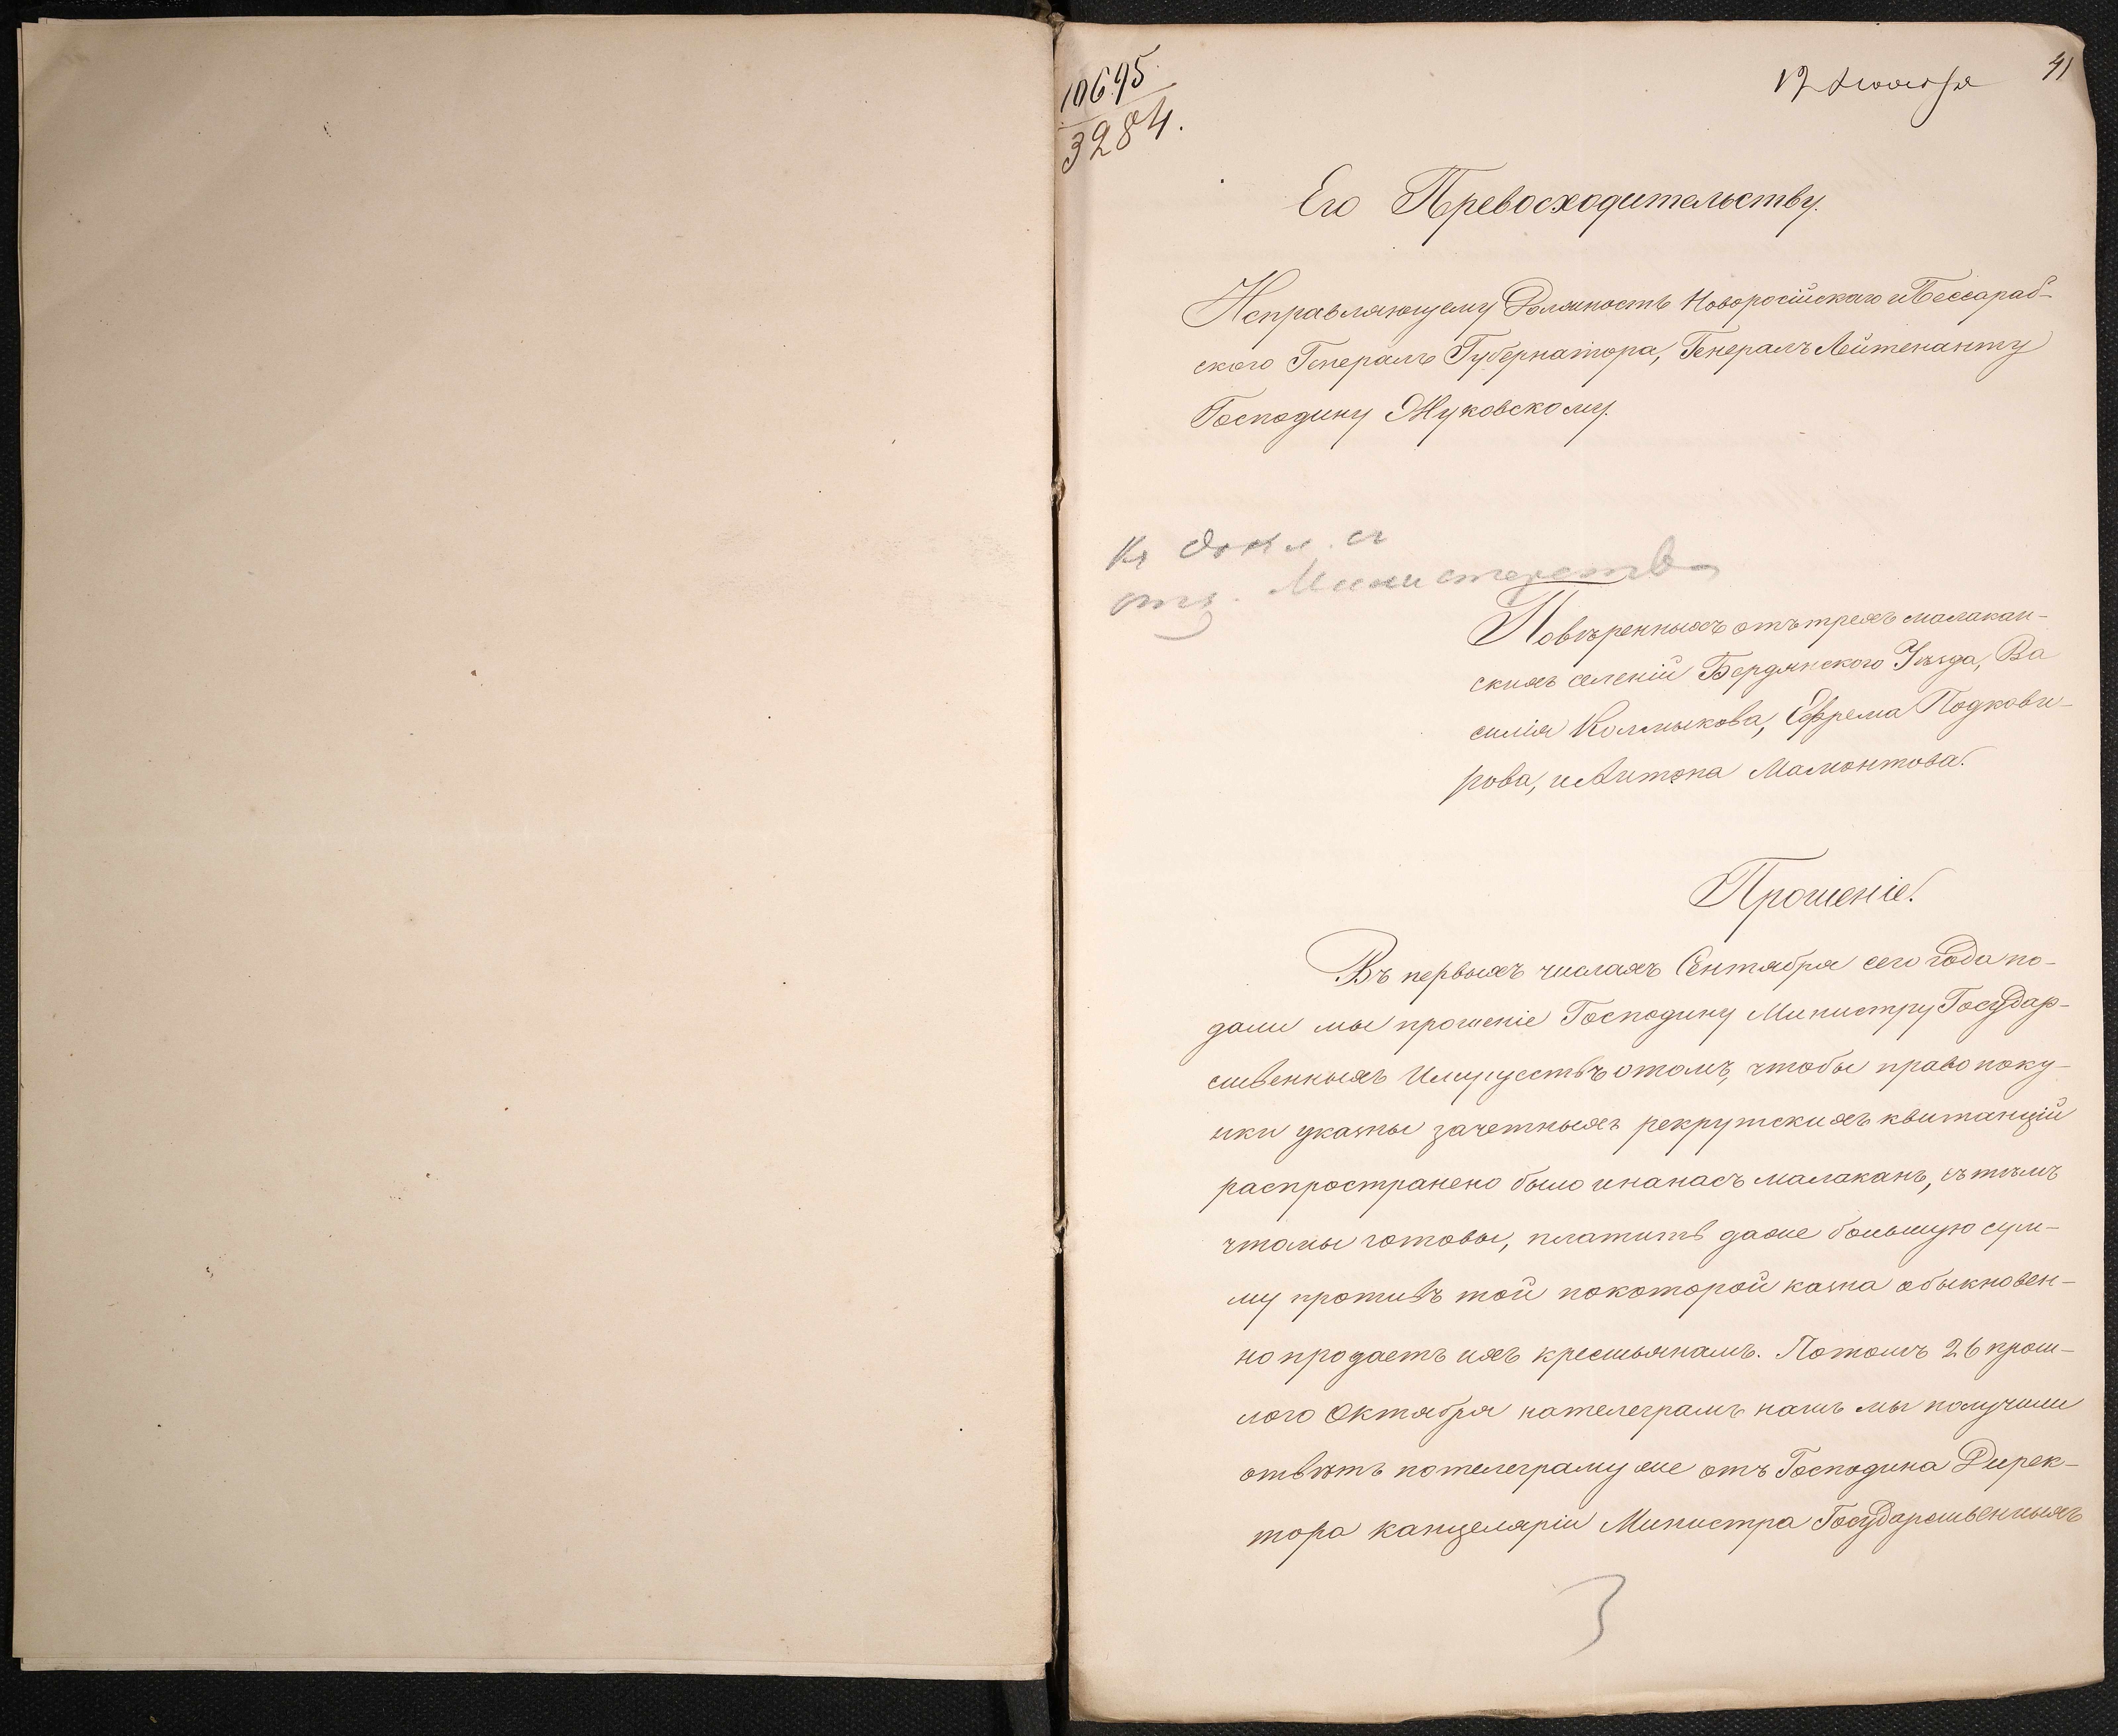 10695
3284.
12 Ноября
41
Его Превосходительству.
Исправляющему Должность Новоросійскаго и Бессараб-
ского Генералъ Губернатора, Генералъ Лейтенанту
Господину Жуковскому.
Къ докл. съ
отз. Министерства
Повѣренныхъ отъ трехъ малакан-
скихъ селеній Бердянского Уѣзда, Ва
силія Колмыкова, Ефрема Подкови-
рова, и Антона Мамонтова.
Прошеніе.
Въ первыхъ числахъ Сентября сего года по-
дали мы прошеніе Господину Министру Государ-
ственныхъ Имуществъ отомъ, чтобы право поку-
пки у казны зачетныхъ рекрутскихъ квитанцій
распространено было и на насъ малаканъ, съ тѣмъ
что мы готовы, платить даже большую сум-
му противъ той по которой казна обыкновен-
но продаетъ ихъ крестьянамъ. Потомъ 26 прош-
лого Октября на телеграмъ нашъ мы получили
отвѣтъ по телеграму же отъ Господина Дирек-
тора канцеляріи Министра Государственныхъ
3